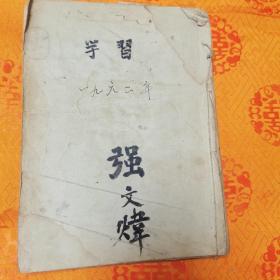 学習
一九六二年
强
文煒